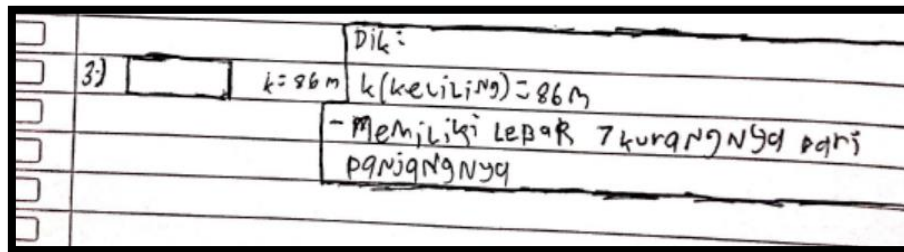 Dik:
3.) k = 86 m k (keliling) = 86 m
- Memiliki Lebar 7 kurangnya dari
panjangnya